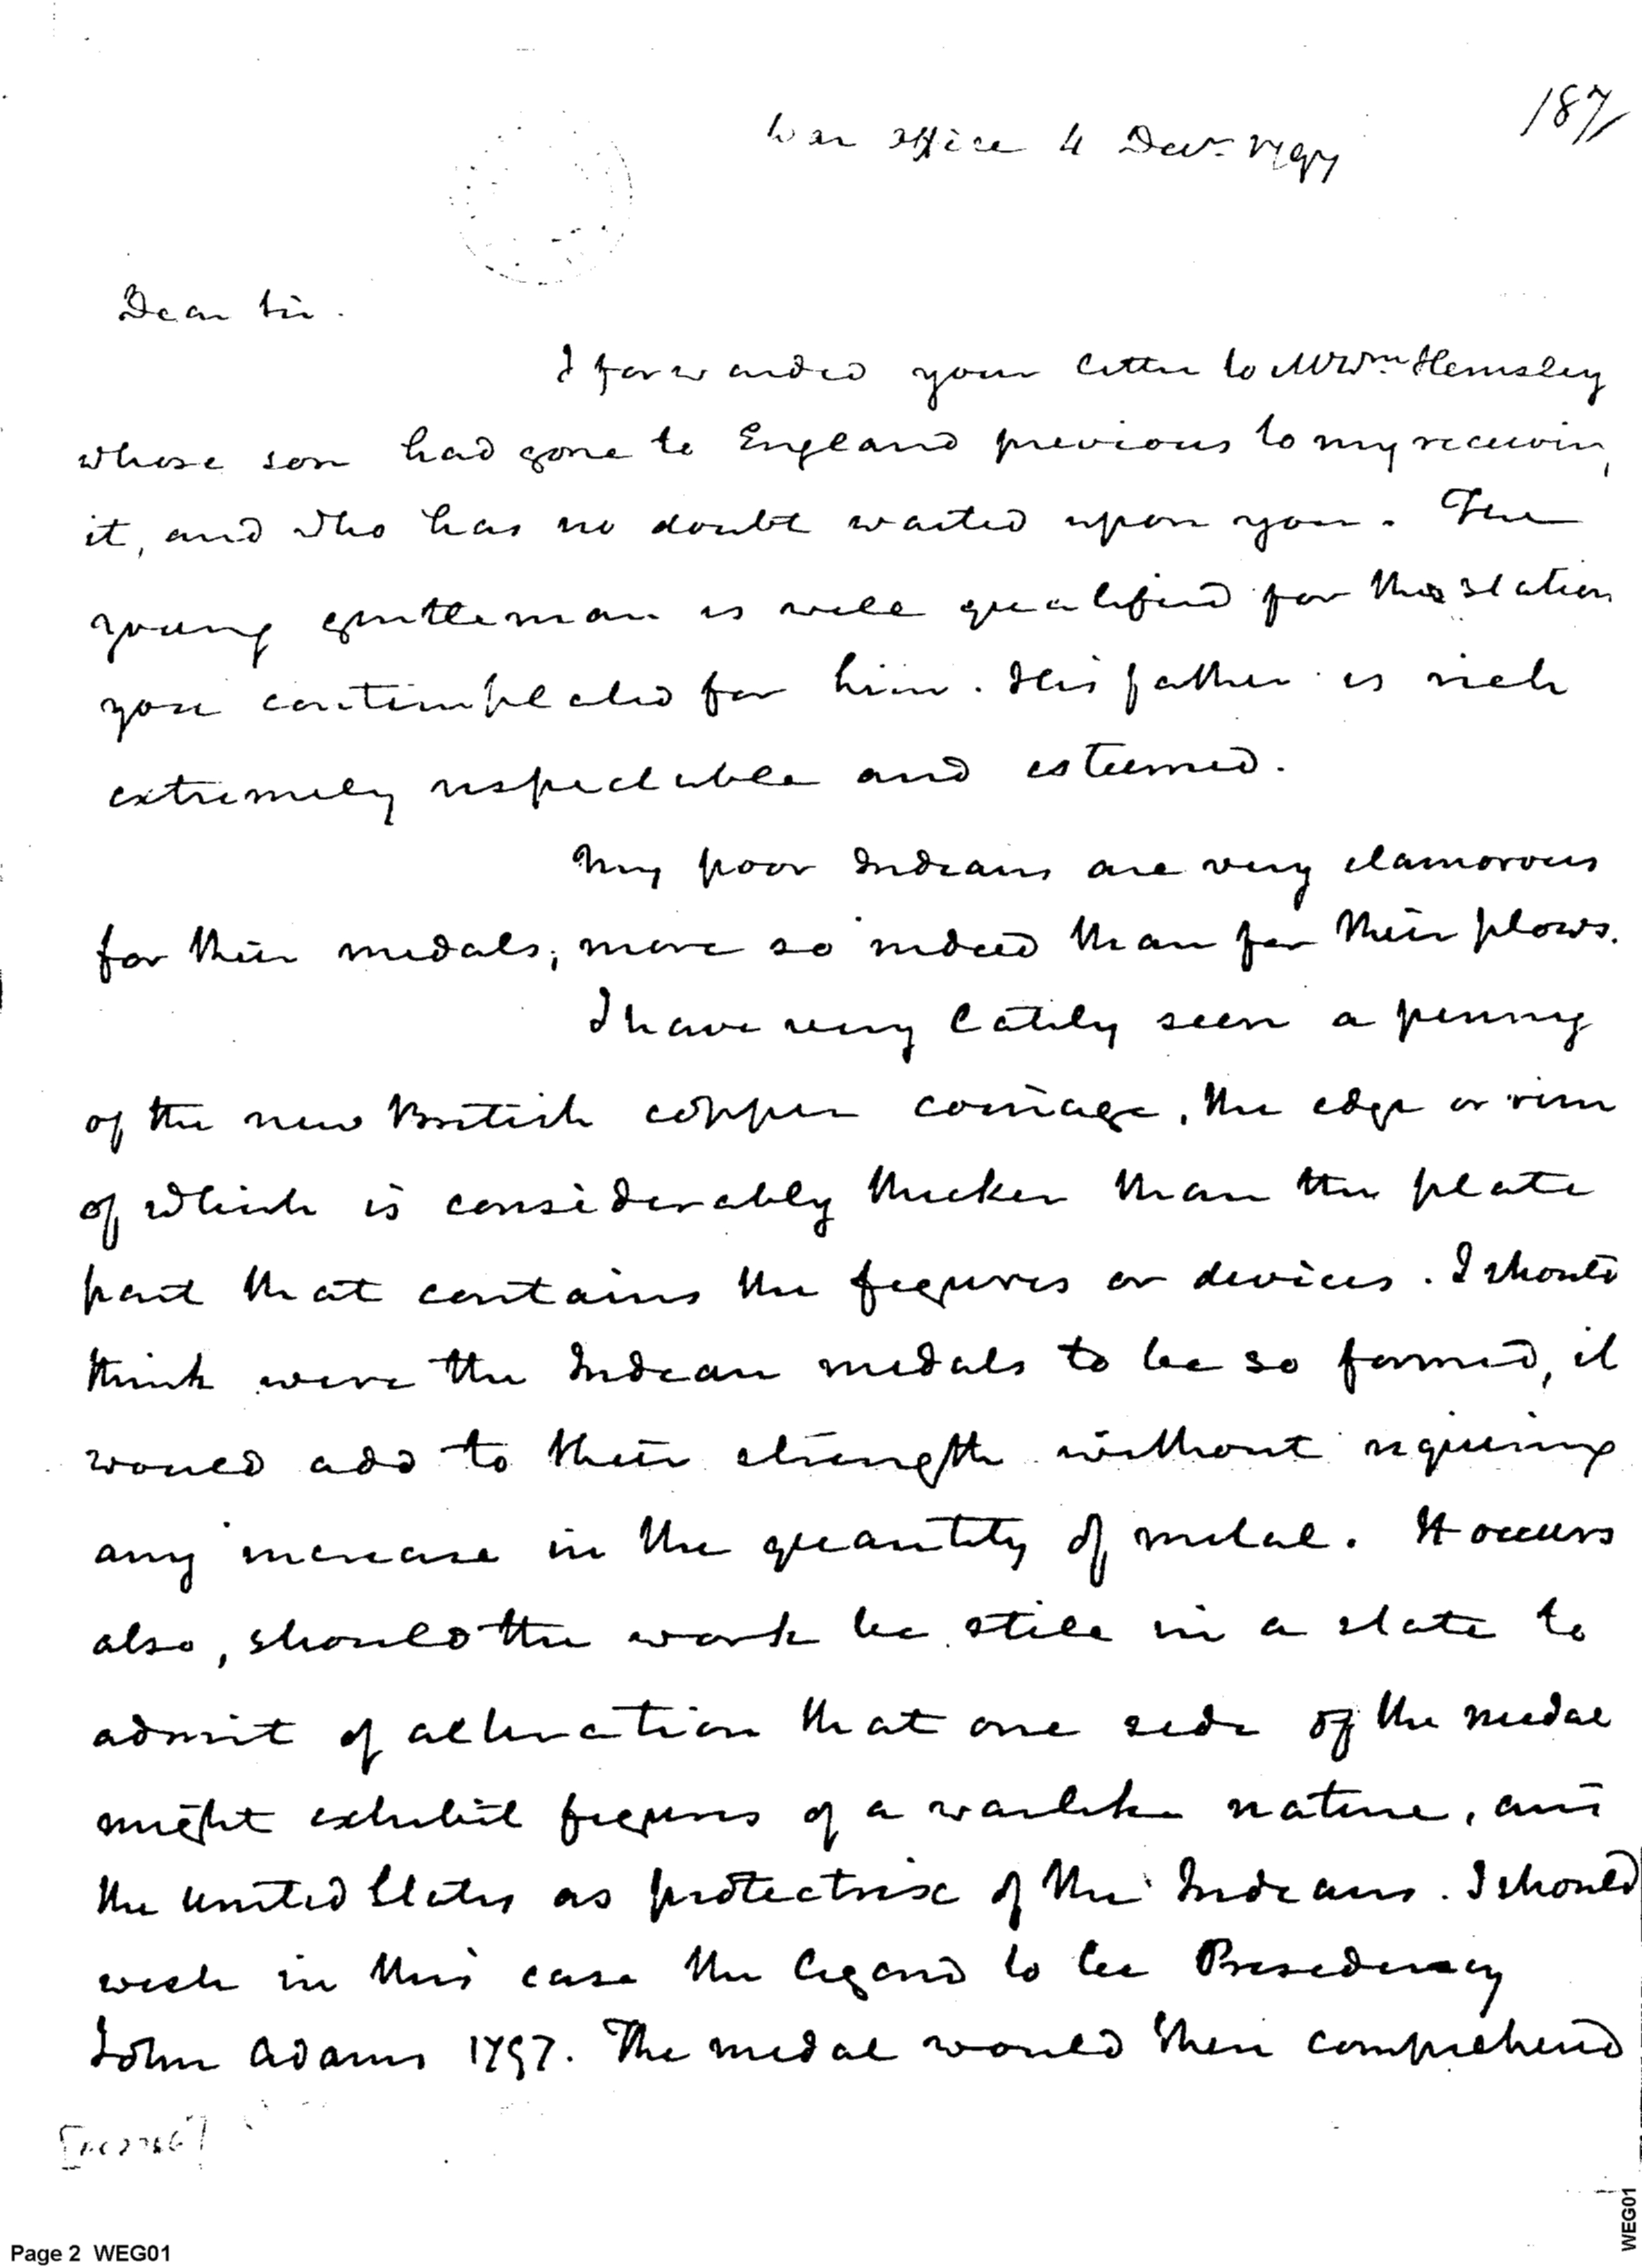 187
War office 4 Decr. 1797
Dear Sir.
I forwarded your letter to Mr Wm Hemsley
whose son had gone to England previous to my receiving
it, and who has no doubt waited upon you. The
young gentleman is well qualified for the station
you contemplated for him. His father is rich
extremely respectable and esteemed.
My poor Indians are very clamorous
for their medals; more so indeed than for their plows.
I have very lately seen a penny
of the new British copper coinage, the edge or rim
of which is considerably thicker than the plate
part that contains the figures or devices. I should
think were the Indian medals to be so formed, it
would add to their strength without requiring
any increase in the quantity of metal. It occurs
also, should the work be still in a state to
admit of alteration that one side of the medal
might exhibit figures of a warlike nature, and
the United States as protectrix of the Indians. I should
wish in this case the legend to be Presidency
John Adams 1797. The medal would then comprehend
Page 2 WEG01
WEG01